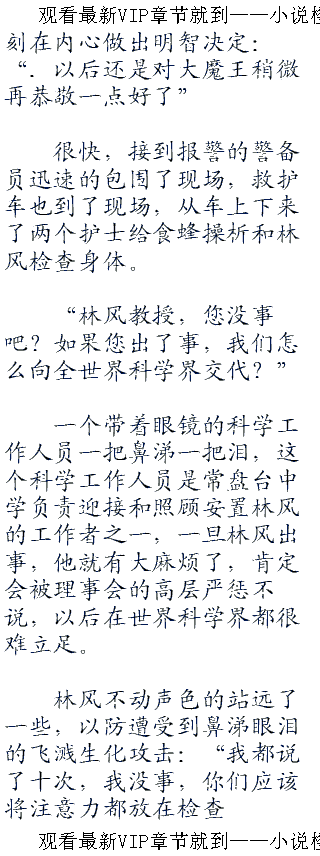 观看最新VIP章节就到——小说
刻在内心做出明智决定：
“．以后还是对大魔王稍微
再恭敬一点好了”
很快，接到报警的警备
员迅速的包围了现场，救护
车也到了现场，从车上下来
了两个护士给食蜂操析和林
风检查身体。
“林风教授，您没事
吧？如果您出了事，我们怎
么向全世界科学界交代？”
一个带着眼镜的科学工
作人员一把鼻涕一把泪，这
个科学工作人员是常盘台中
学负责迎接和照顾安置林风
的工作者之一，一旦林风出
事，他就有大麻烦了，肯定
会被理事会的高层严惩不
说，以后在世界科学界都很
难立足。
林风不动声色的站远了
一些，以防遭受到鼻涕眼泪
的飞溅生化攻击：“我都说
了十次，我没事，你们应该
将注意力都放在检查
观看最新VIP章节就到——小说